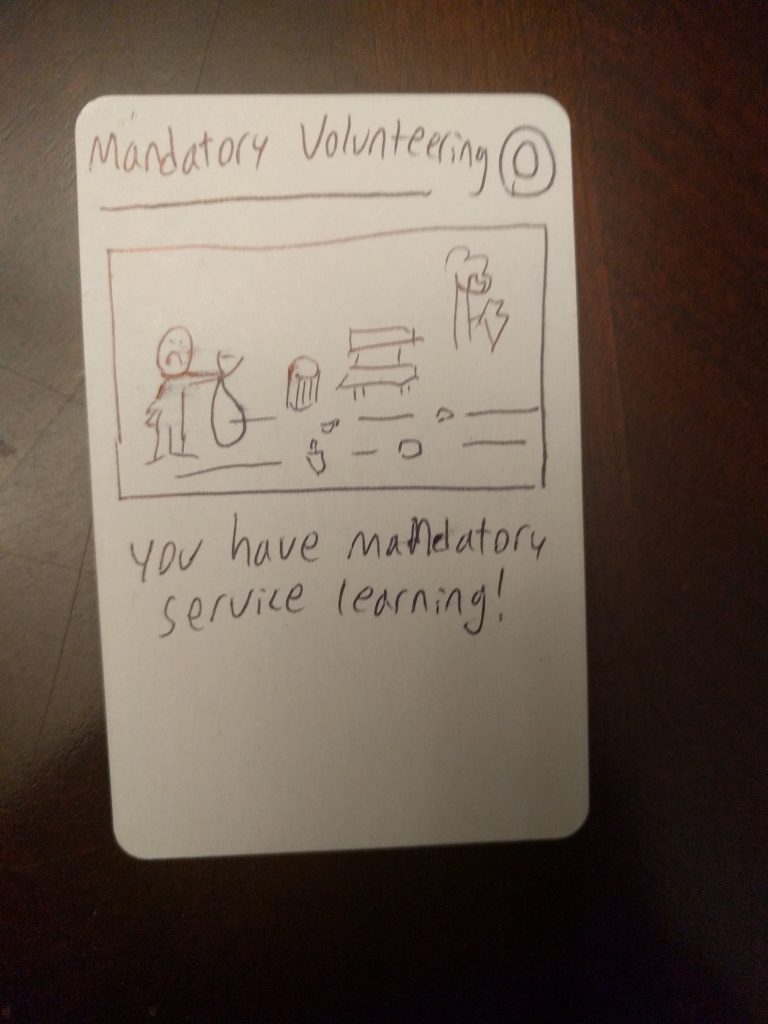 Mandatory Volunteering 0
you have mandatory
service learning!